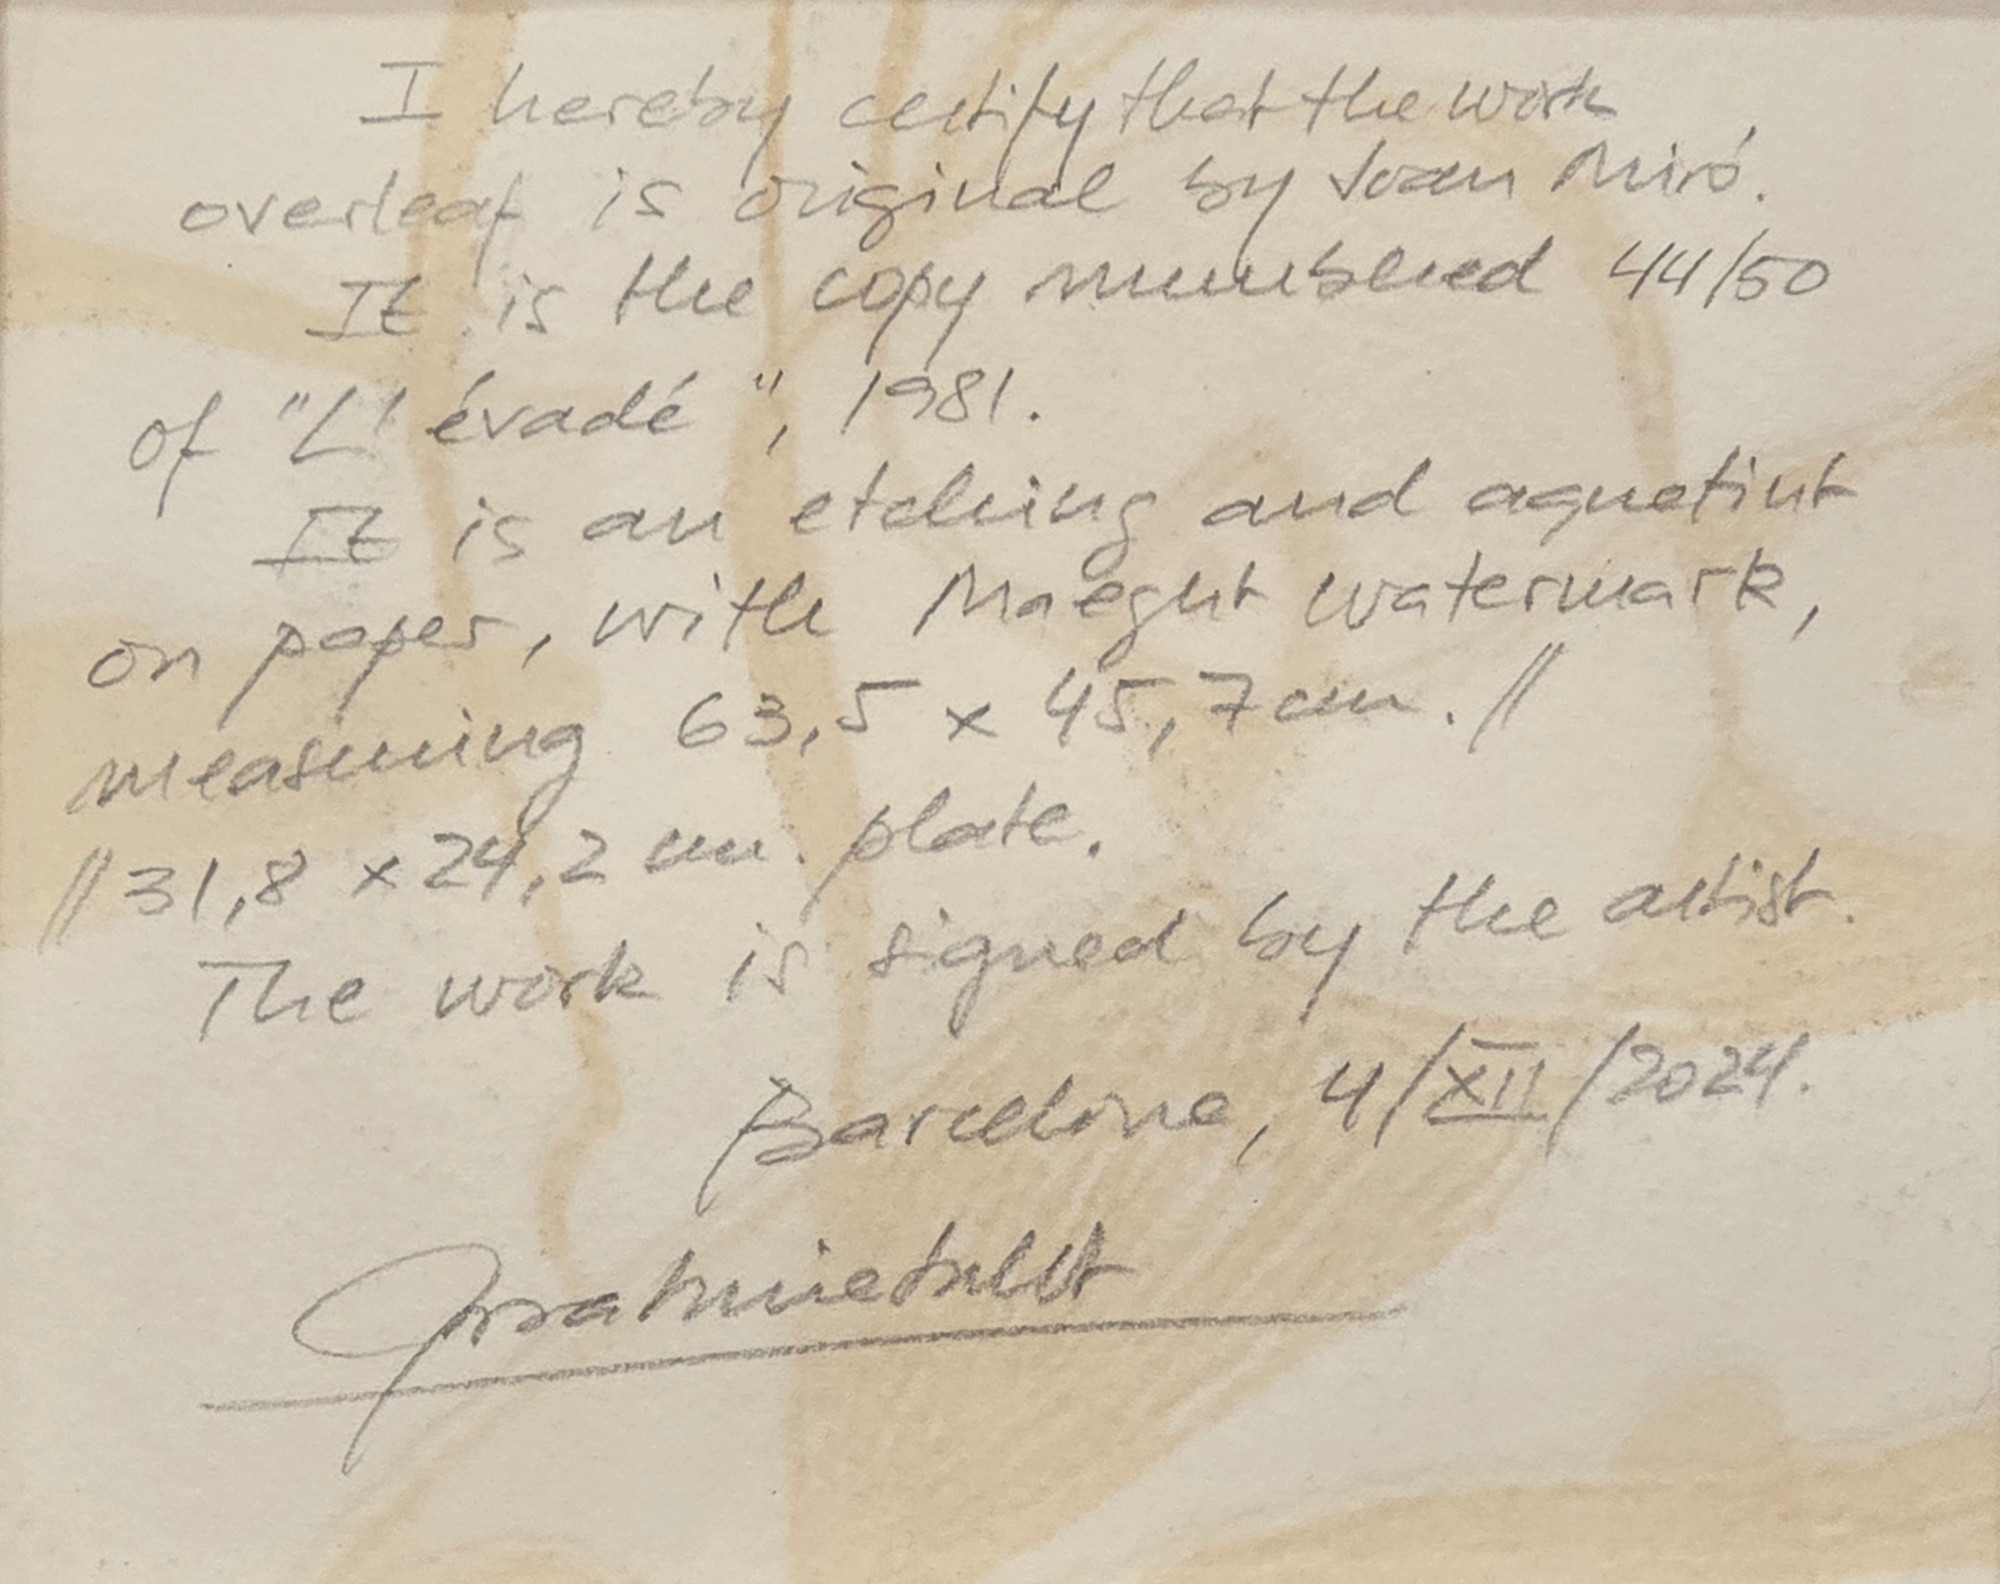 I hereby certify that the work
overleaf is original by Joan Miró.
It is the copy numbered 44/50
of "L'évadé", 1981.
It is an etching and aquatint
on paper, with Maeght watermark,
measuring 63,5 x 45,7 cm. //
// 31,8 x 24,2 cm. plate.
The work is signed by the artist.
Barcelona, 4/XII/2024.